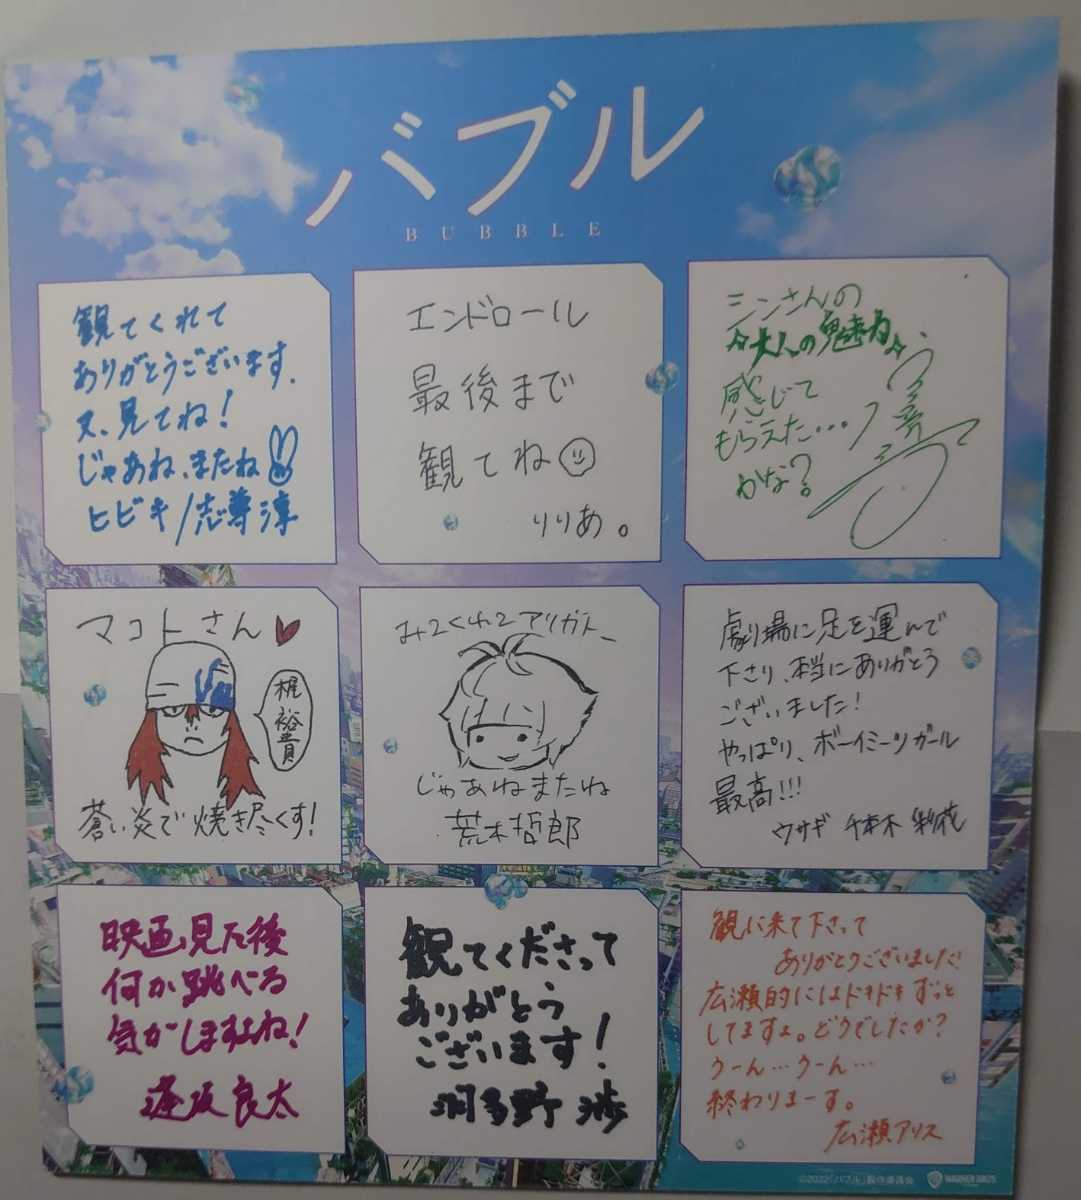 バブル
BUBBLE
観てくれて
ありがとうございます.
又、見てね!
じゃあね、またね
ヒビキ/志尊淳
エンドロール
最後まで
観てね
りりあ。
シンさんの
大人の魅力
感じて
もらえた...
かな?
マコトさん
梶裕貴
蒼い炎で焼き尽くす!
みてくれてアリガトー
じゃあねまたね
荒木哲郎
劇場に足を運んで
下さり、本当にありがとう
ございました!
やっぱり、ボーイミーツガール
最高!!!
ウサギ 千本木彩花
映画見た後
何か跳べる
気がしますよね!
逢坂良太
観てくださって
ありがとう
ございます!
羽多野渉
観に来て下さって
ありがとうございました!
広瀬的にはドキドキずっと
してますよ。どうでしたか?
うーん…うーん…
終わりまーす。
広瀬アリス
©2022「バブル」製作委員会
WARNER BROS.